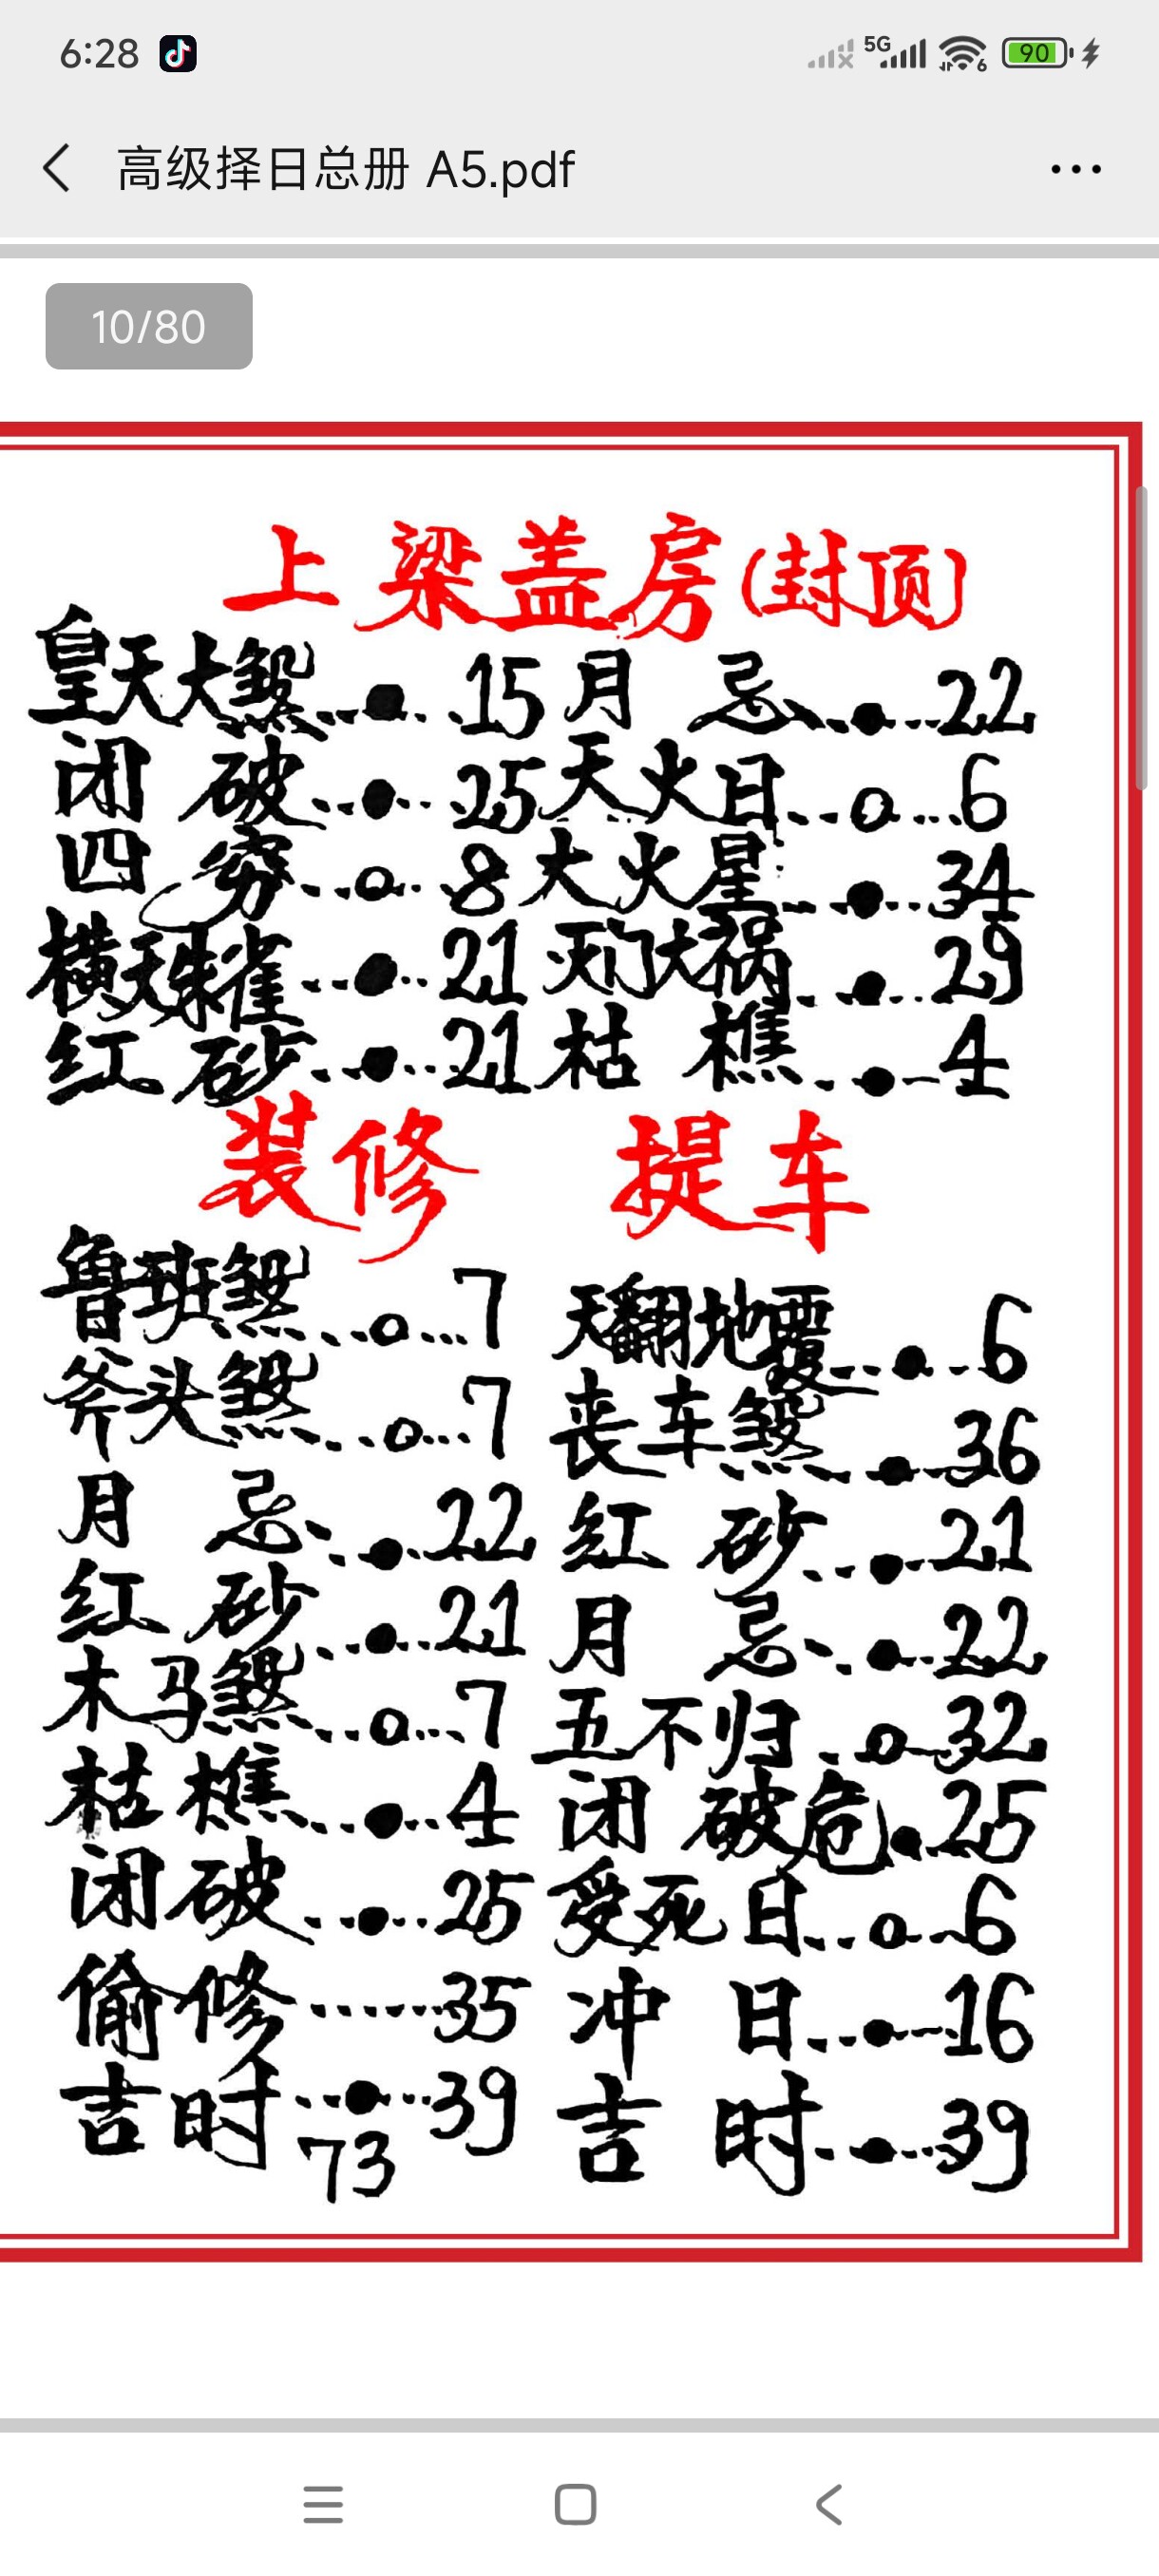 6:28
5G
6
90
高级择日总册 A5.pdf
10/80
上梁盖房(封顶)
皇天大煞...●...15 月忌...●...22
闭破...●...25 天火日...o...6
四穷...o...8 大火星...●...34
横天珠雀...●...21 灭门大祸...●...29
红砂...●...21 枯樵...●...4
装修 提车
鲁班煞...o...7 天翻地覆...●...6
斧头煞...o...7 丧车煞...●...36
月忌...●...22 红砂...●...21
红砂...●...21 月忌...●...22
木马煞...o...7 五不归...o...32
枯樵...●...4 闭破危●...25
闭破...●...25 受死日...o...6
偷修......35 冲日...●...16
吉时...●...39 吉时...●...39
73